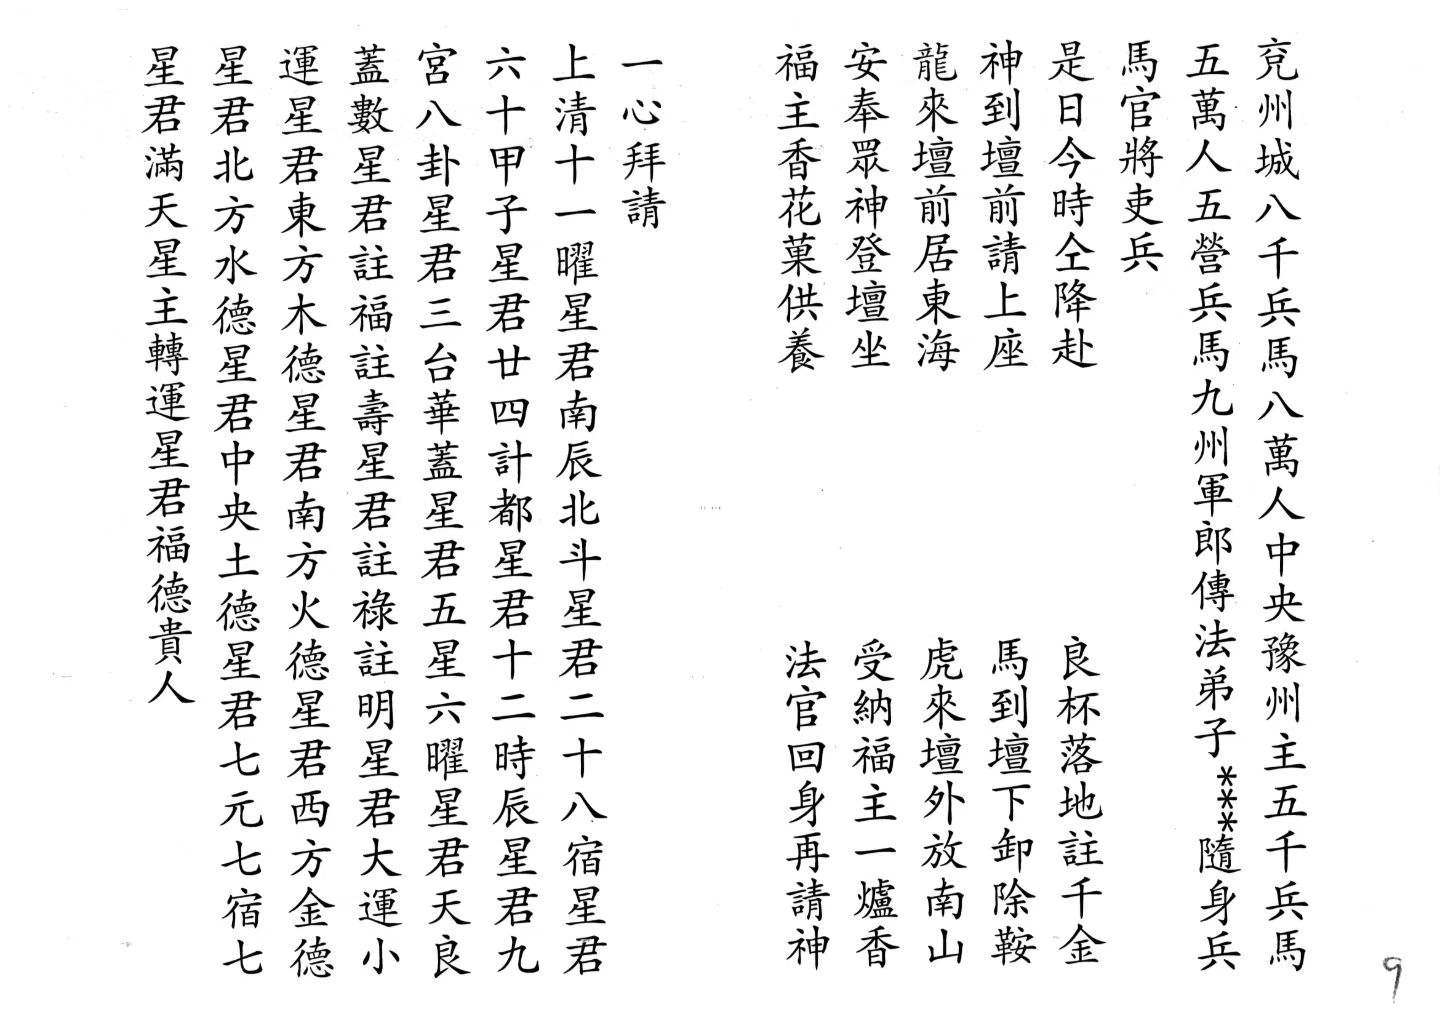 兗州城八千兵馬八萬人中央豫州主五千兵馬
五萬人五營兵馬九州軍郎傳法弟子***隨身兵
馬官將吏兵
是日今時仝降赴 良杯落地註千金
神到壇前請上座 馬到壇下卸除鞍
龍來壇前居東海 虎來壇外放南山
安奉眾神登壇坐 受納福主一爐香
福主香花菓供養 法官回身再請神
一心拜請
上清十一曜星君南辰北斗星君二十八宿星君
六十甲子星君廿四計都星君十二時辰星君九
宮八卦星君三台華蓋星君五星六曜星君天良
蓋數星君註福註壽星君註祿註明星君大運小
運星君東方木德星君南方火德星君西方金德
星君北方水德星君中央土德星君七元七宿七
星君滿天星主轉運星君福德貴人
9